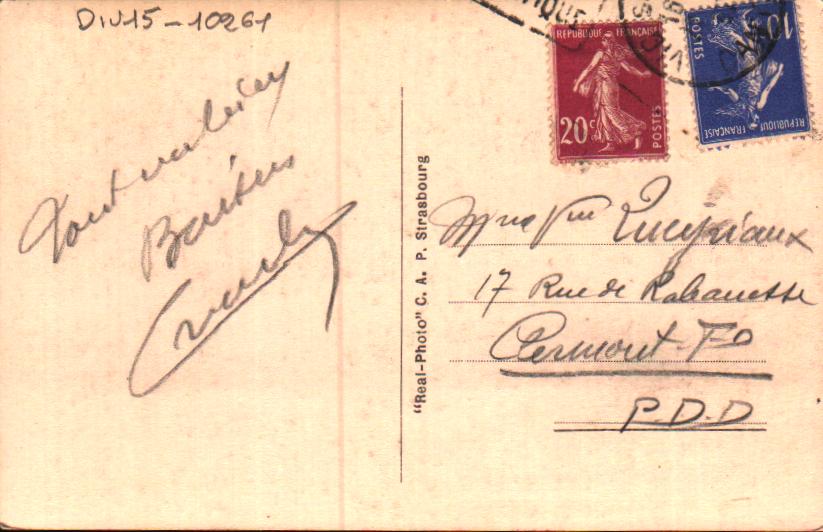 DIV15-10261
Tout va bien
Baisers
RÉPUBLIQUE FRANÇAISE
20c
POSTES
RÉPUBLIQUE FRANÇAISE
10c
POSTES
"Real-Photo" C. A. P. Strasbourg
Mme Vve
17 Rue de Rabanesse
Clermont-Fd
P.D.D